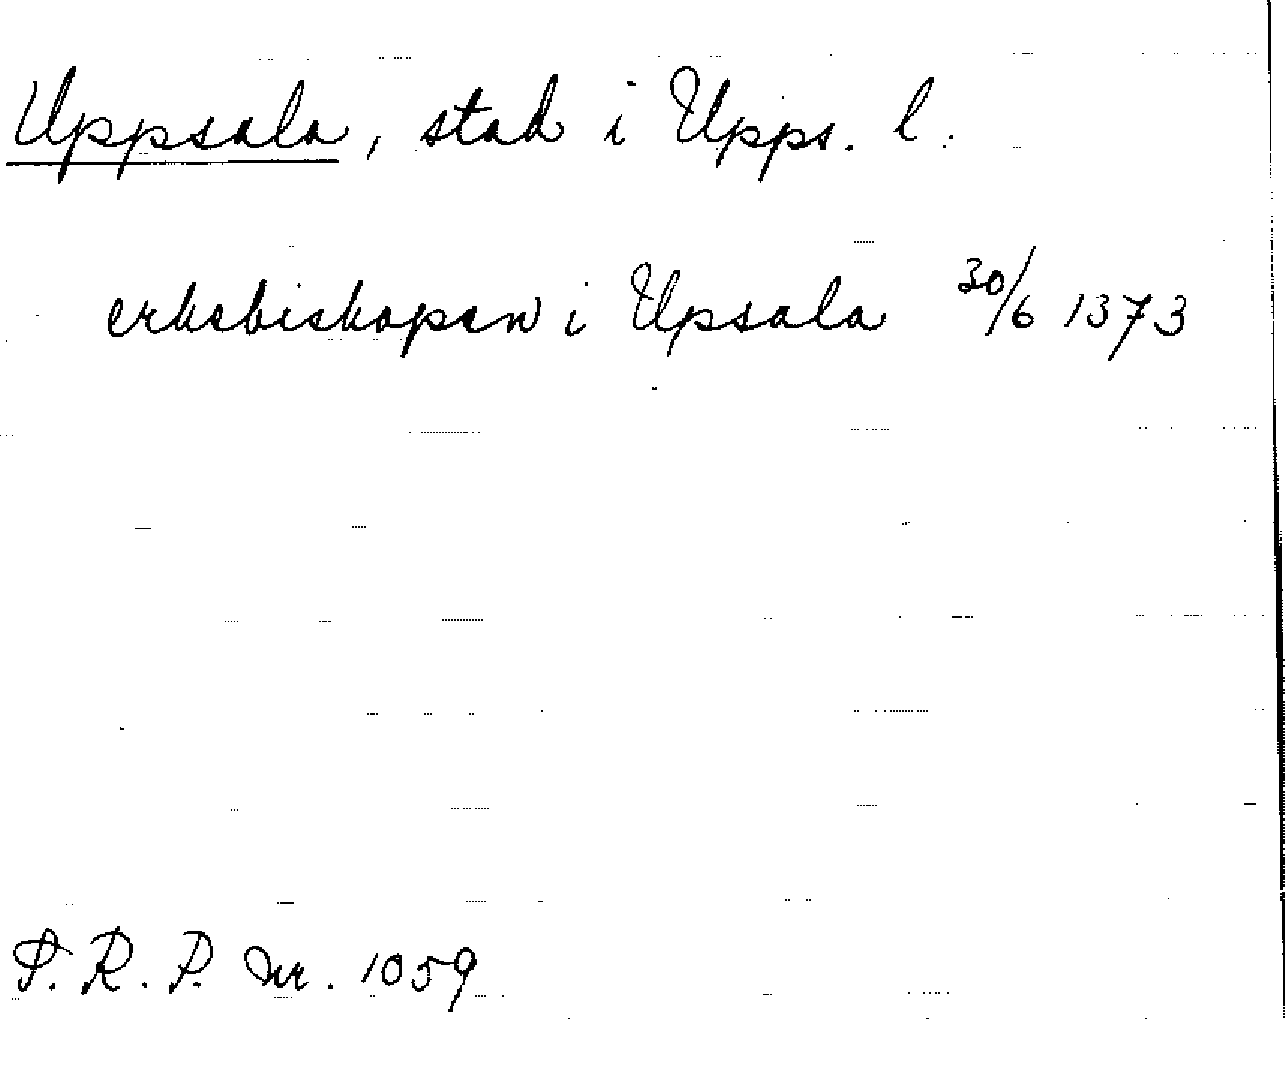 Uppsala, stad i Upps. l.
erkebiskopen i Upsala 30/6 1373
S.R.P. Nr. 1059